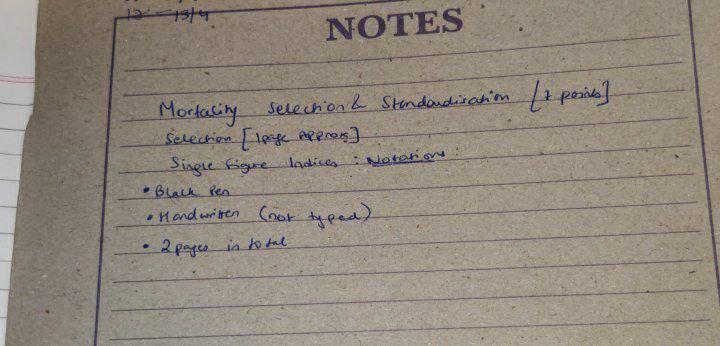 12 13/4
NOTES
Mortality Selection & Standardisation [7 points]
Selection [1page Approx]
Single figure Indices : Notations :
• Black Pen
• Handwritten (not typed)
• 2 pages in total